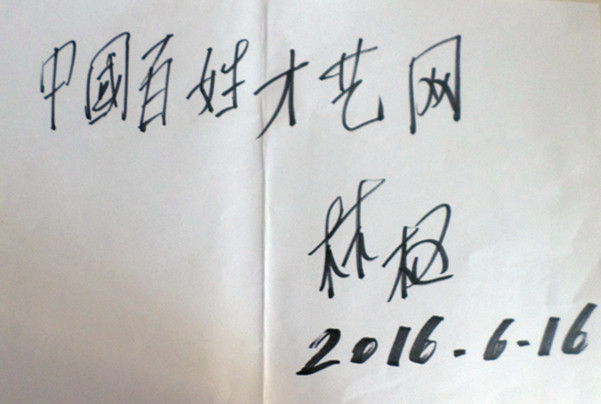 中國百姓才艺网
林枫
2016.6-16